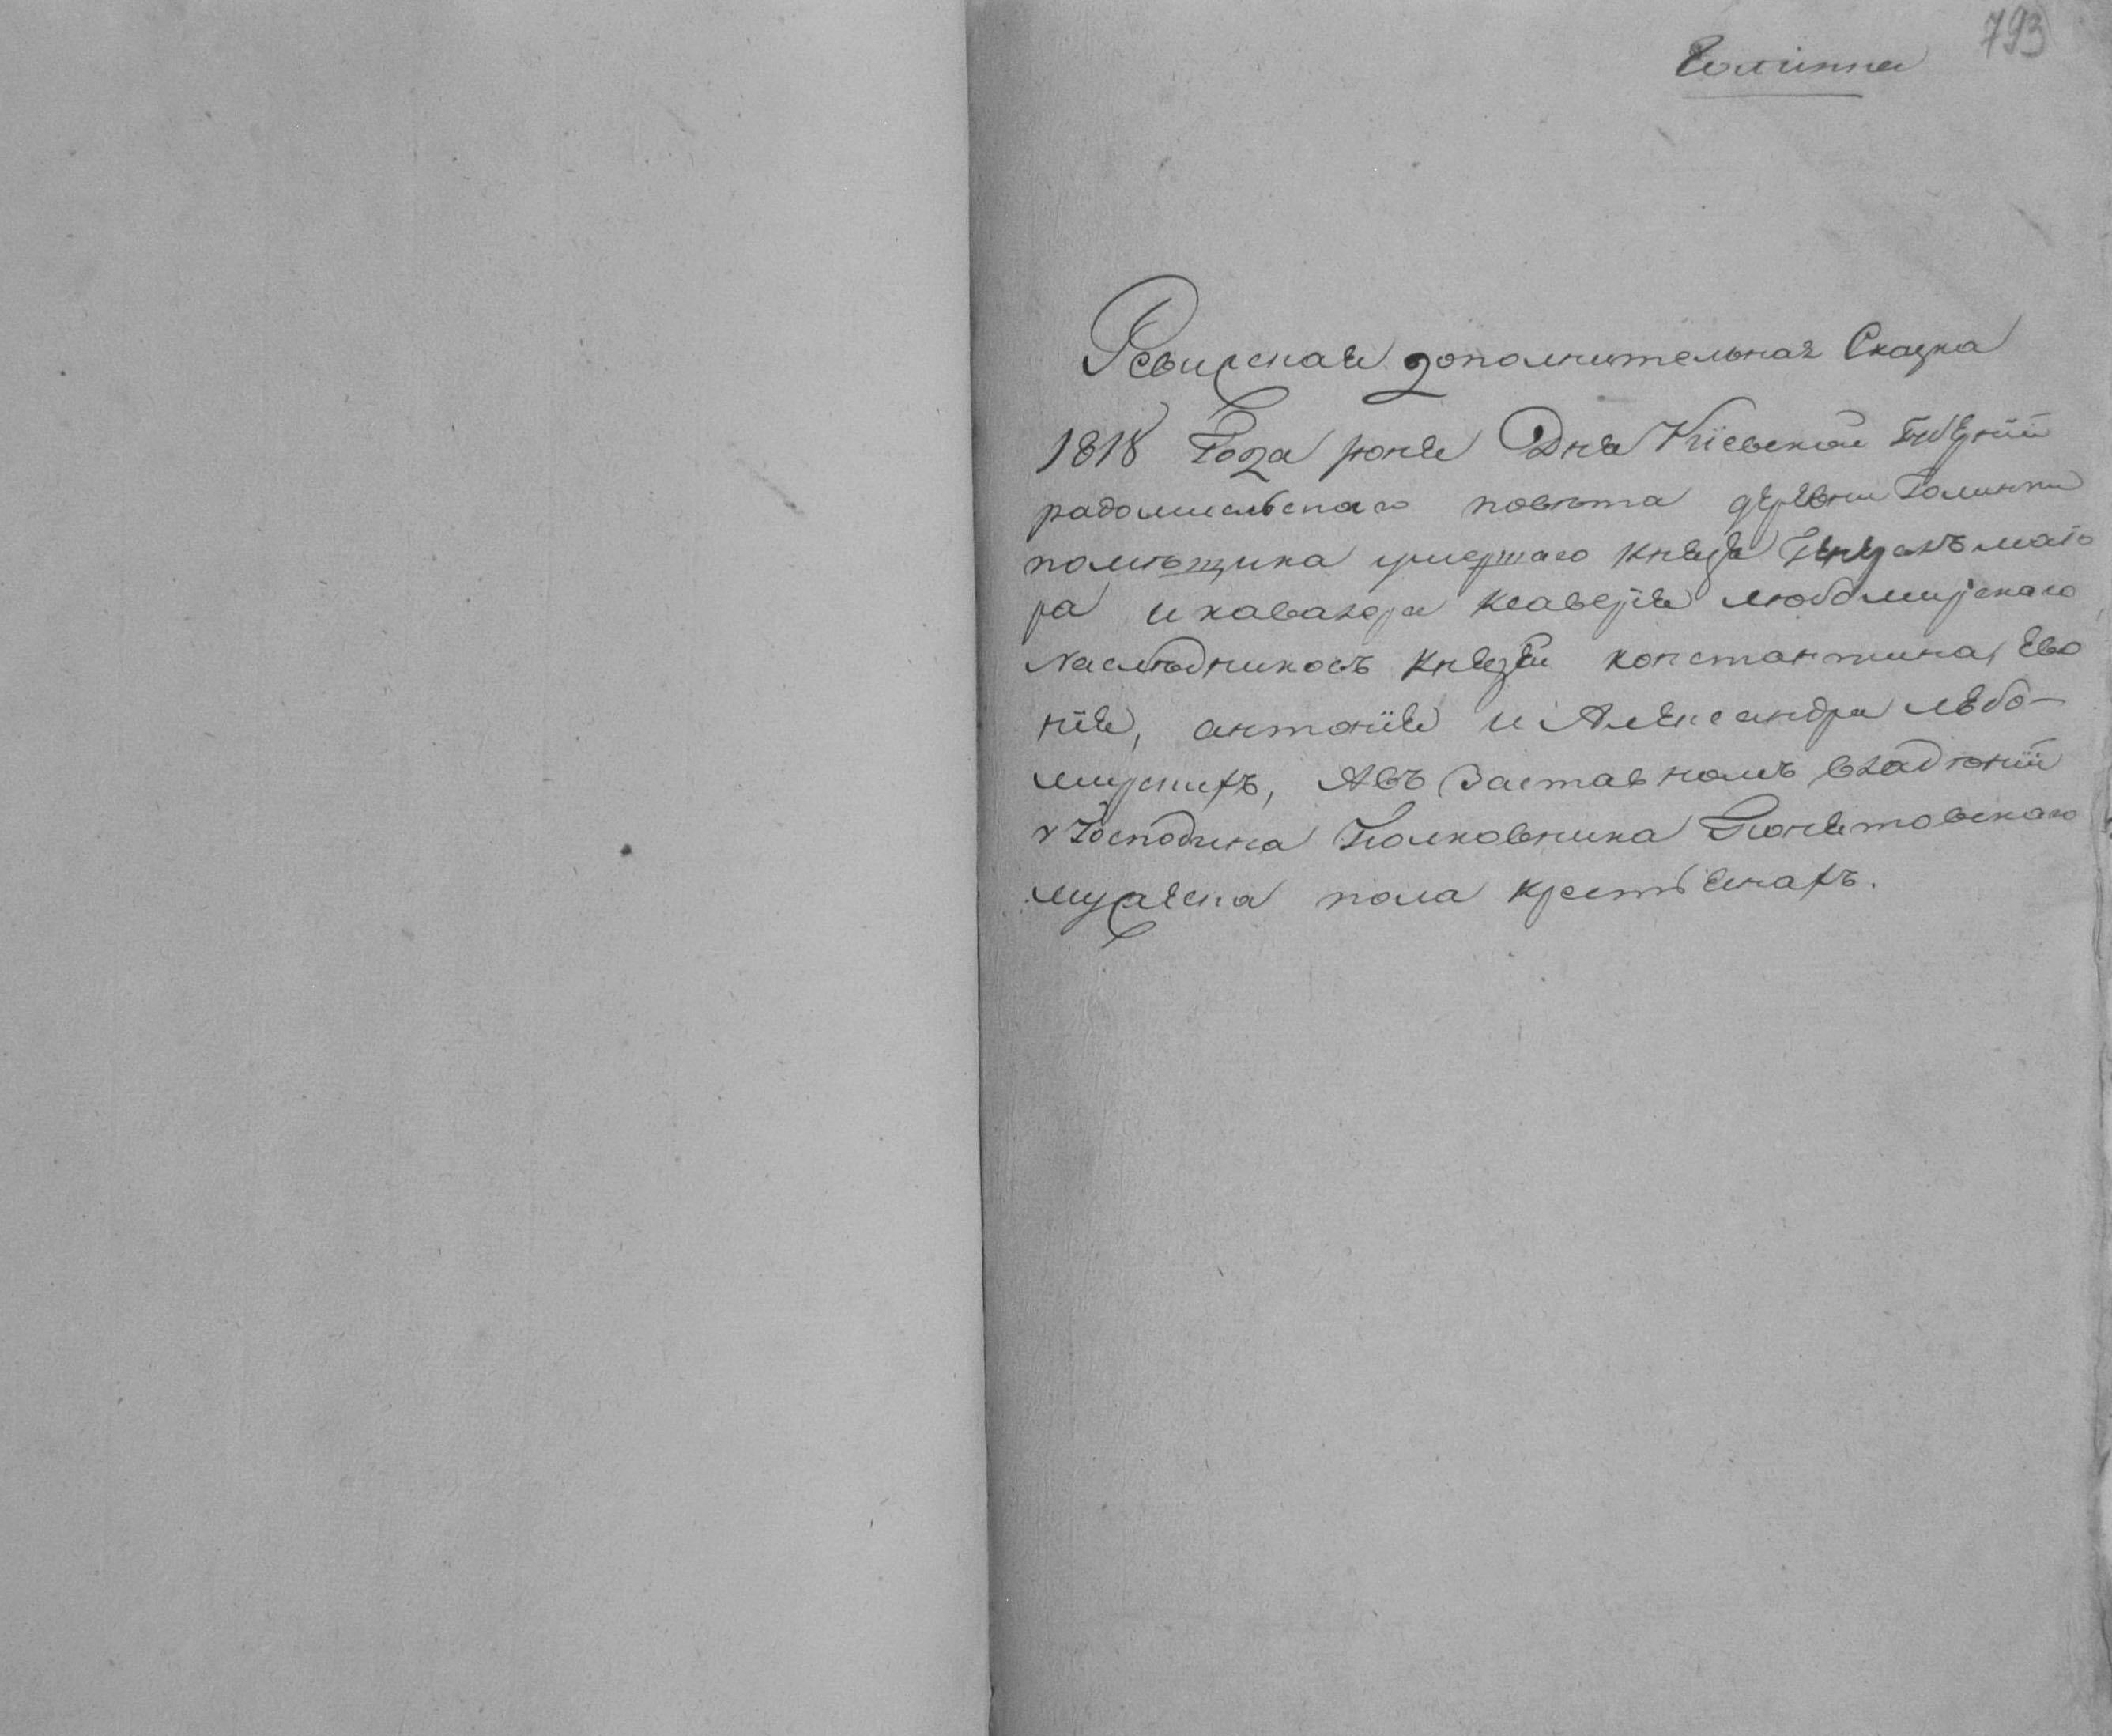 793
Голинка
Ревизская дополнительная Сказка
1818 Года июня Дня Кіевской Губерніи
радомисльскаго повѣта деревни Голинки
помѣщика умершаго князя Генералъ маіо
ра и кавалера ксаверія любомирскаго
наслѣдниковъ князей константина, Евге
нія, антонія и Александра любо-
мирскихъ, Авъ Заставномъ владѣніи
у Господина Полковника
мужеска пола крестьянахъ.